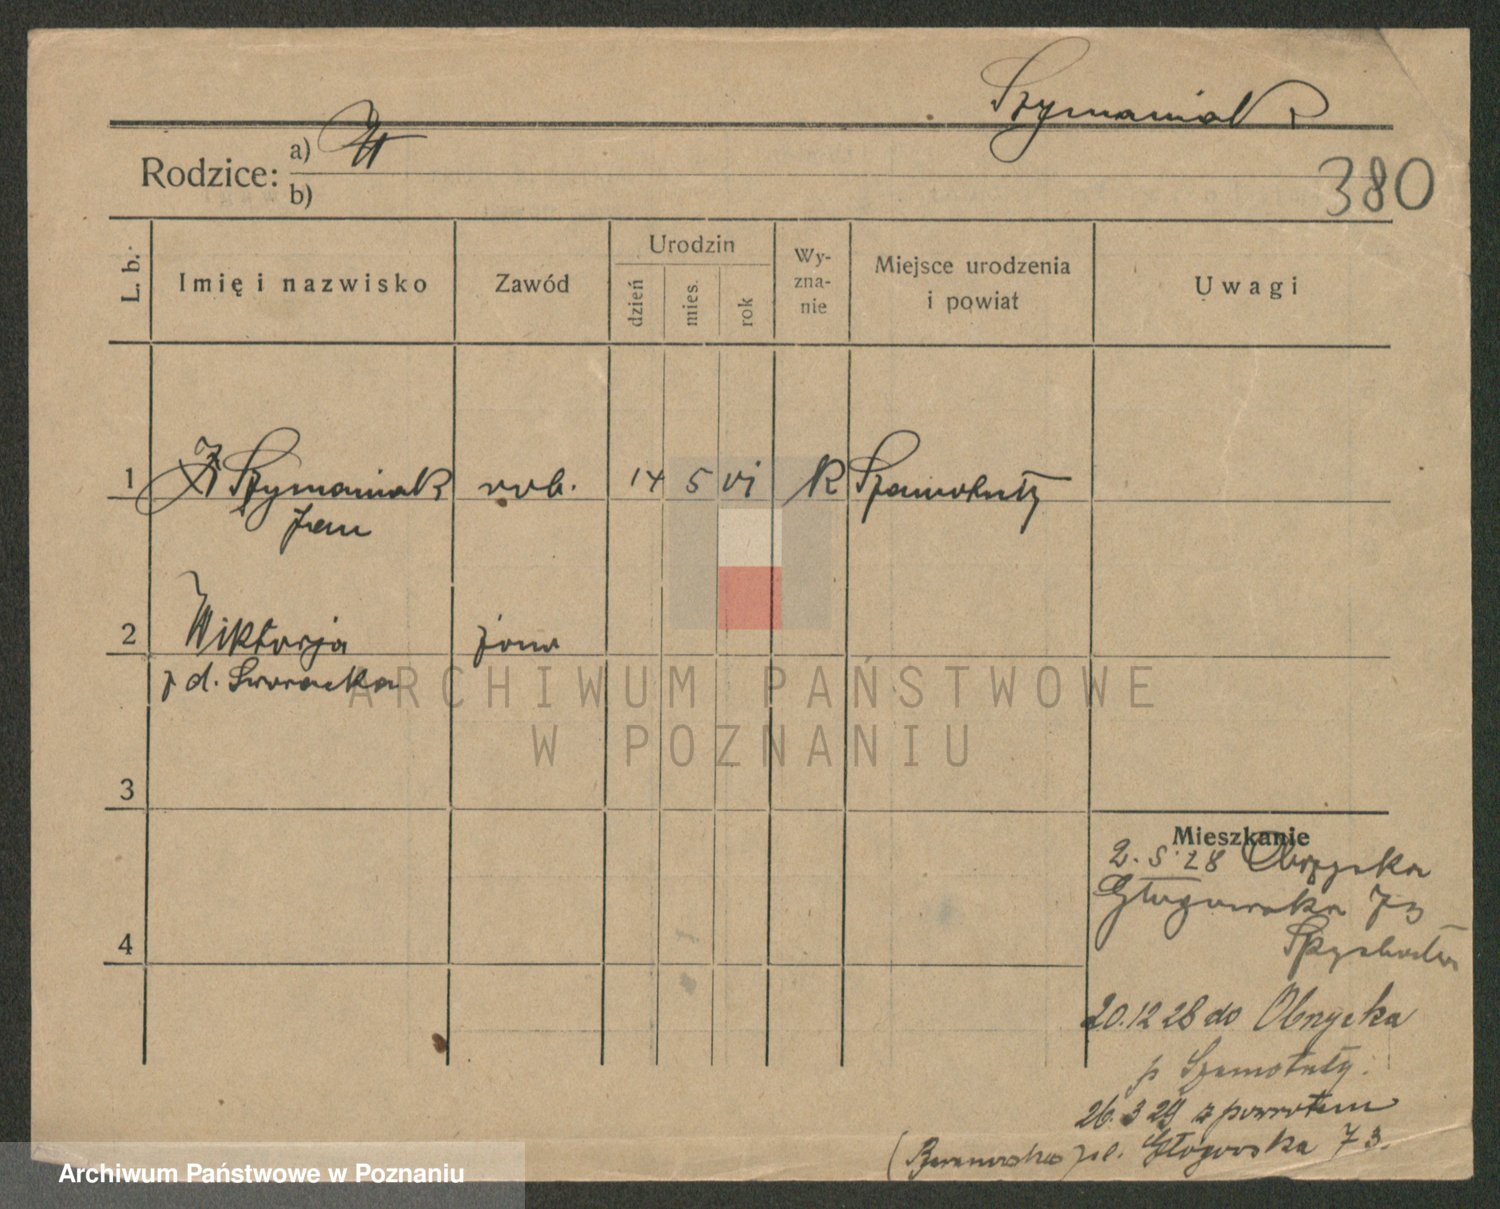 Szymaniak
Rodzice: a)
b)
380
L. b. Imię i nazwisko Zawód Urodzin dzień mies. rok Wy-zna-nie Miejsce urodzenia i powiat Uwagi
1 Szymaniak rob. 14 5 R Szamotuły
Jan
2 Wiktorja żona
z d.
ARCHIWUM PAŃSTWOWE
W POZNANIU
3
Mieszkanie
2.5.28 Obrzycka
Głogowska 73
4
20.12 28 do Obrzycka
p Szamotuły.
26.3 29 z powrotem
Głogowska 73.
Archiwum Państwowe w Poznaniu